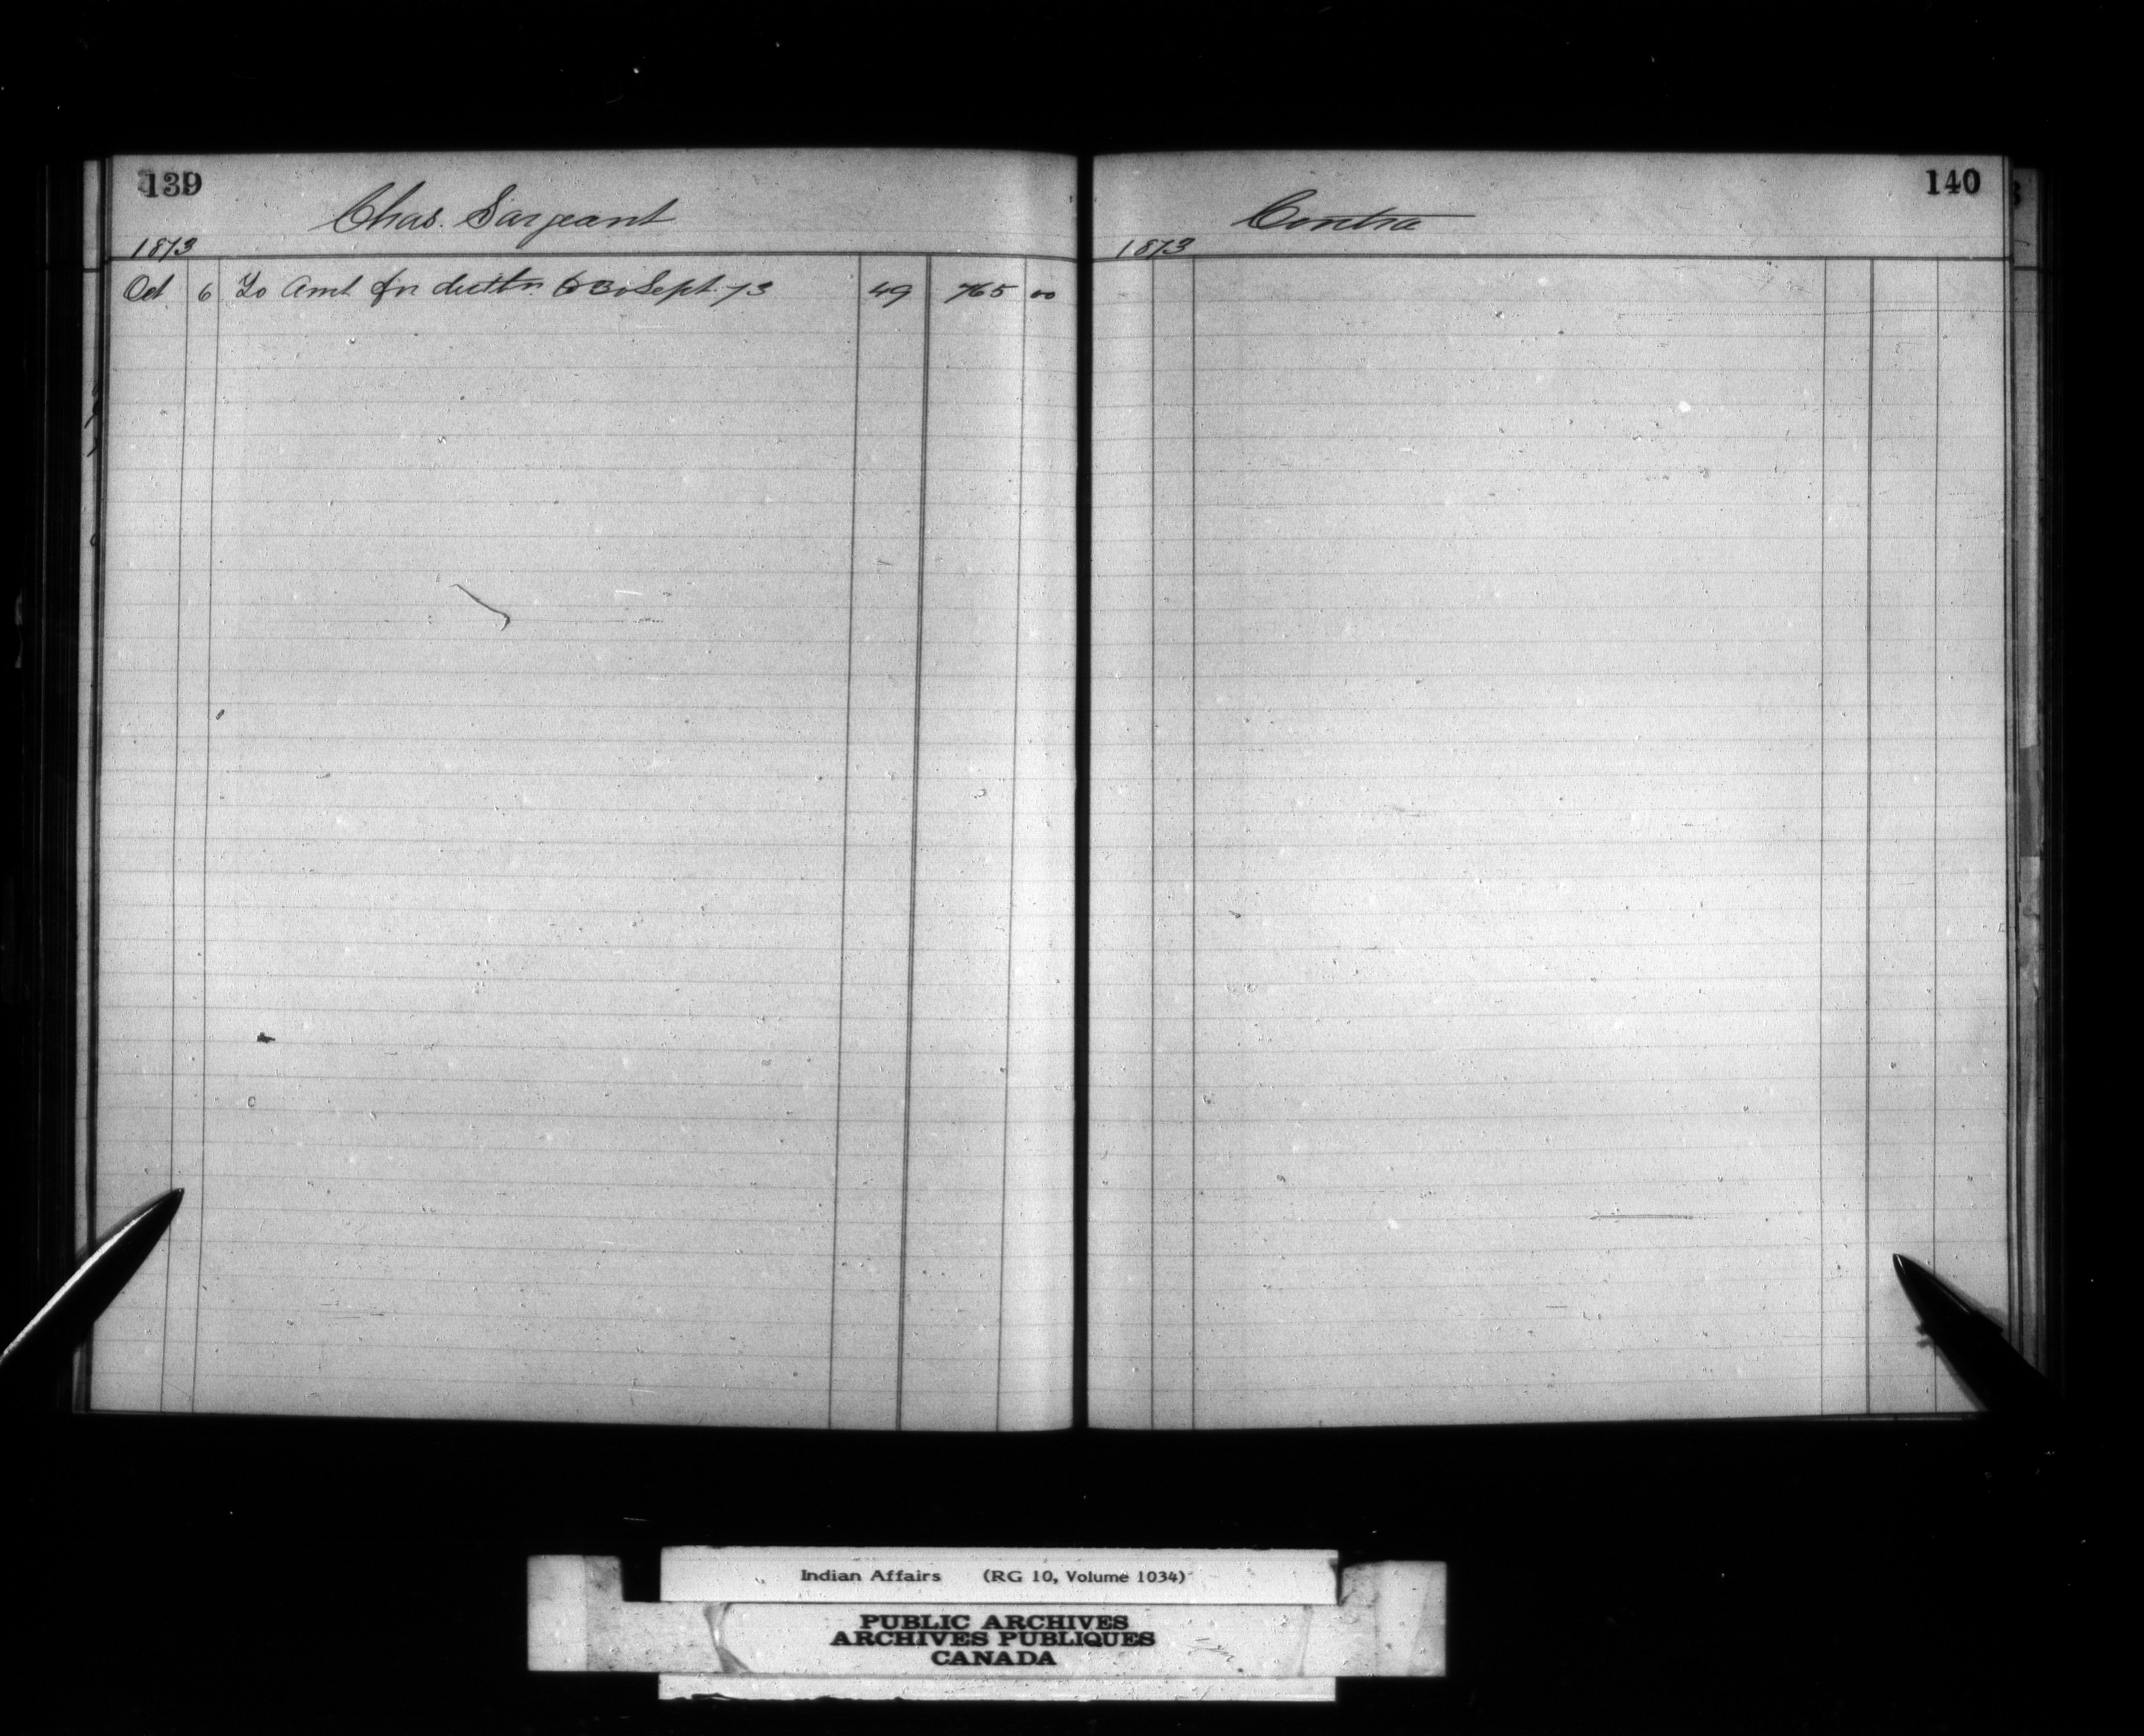 139
Chas. Sargeant
1873
Oct 6 To Amt for distbn to 30 Sept. 73 49 765 00
140
Contra
1873
Indian Affairs (RG 10, Volume 1034)
PUBLIC ARCHIVES
ARCHIVES PUBLIQUES
CANADA